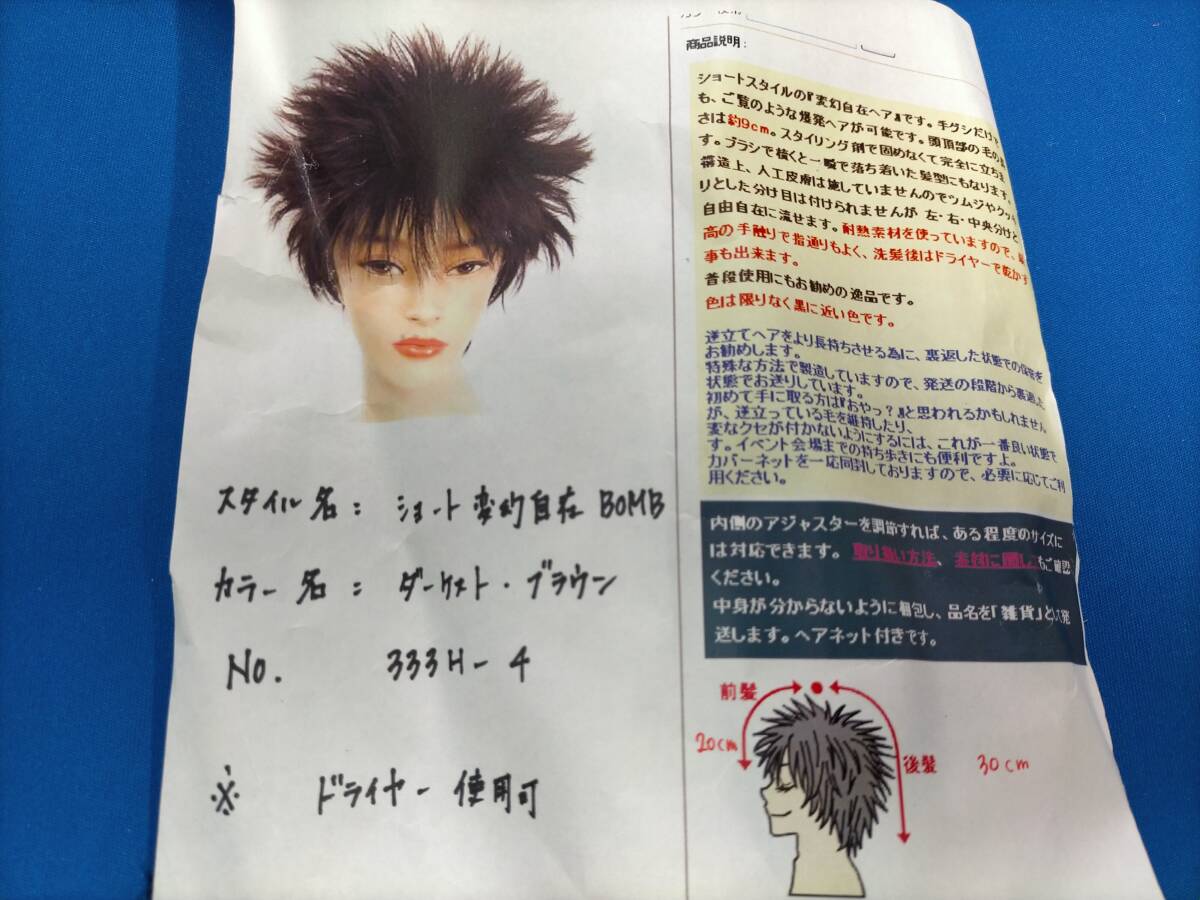 スタイル名: ショート変幻自在 BOMB
カラー名: ダーケスト・ブラウン
No. 333H-4
※ ドライヤー使用可
商品説明:
ショートスタイルの『変幻自在ヘア』です。手グシだけで
も、ご覧のような爆発ヘアが可能です。頭頂部の毛の
さは約9cm。スタイリング剤で固めなくて完全に立ちま
す。ブラシで梳くと一瞬で落ち着いた髪型にもなります。
構造上、人工皮膚は施していませんのでツムジやクッキ
リとした分け目は付けられませんが 左・右・中央分けと
自由自在に流せます。耐熱素材を使っていますので、
高の手触りで指通りもよく、洗髪後はドライヤーで乾かす
事も出来ます。
普段使用にもお勧めの逸品です。
色は限りなく黒に近い色です。
逆立てヘアをより長持ちさせる為に、裏返した状態での保管を
お勧めします。
特殊な方法で製造していますので、発送の段階から裏返した
状態でお送りしています。
初めて手に取る方は『おやっ?』と思われるかもしれません
が、逆立っている毛を維持したり、
変なクセが付かないようにするには、これが一番良い状態で
す。イベント会場までの持ち歩きにも便利ですよ。
カバーネットを一応同封しておりますので、必要に応じてご利
用ください。
内側のアジャスターを調節すれば、ある程度のサイズに
は対応できます。取り扱い方法、素材に関してもご確認
ください。
中身が分からないように梱包し、品名を「雑貨」として発
送します。ヘアネット付きです。
前髪
20cm
後髪
30cm